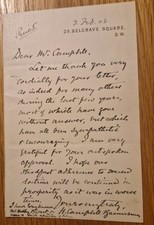 3 Feb. 06
29, BELGRAVE SQUARE,
S.W.
Dear Mr. Campbell,
Let me thank you very
cordially for your letter,
as indeed for many others
during the last few years,
most of which have not
but all been sympathetic
& encouraging. I am very
glad for your outspoken
approval. I hope our
steadfast adherence to
will be continued in
prosperity as it was in worse
times.
Yours very truly,
H. Campbell Bannerman